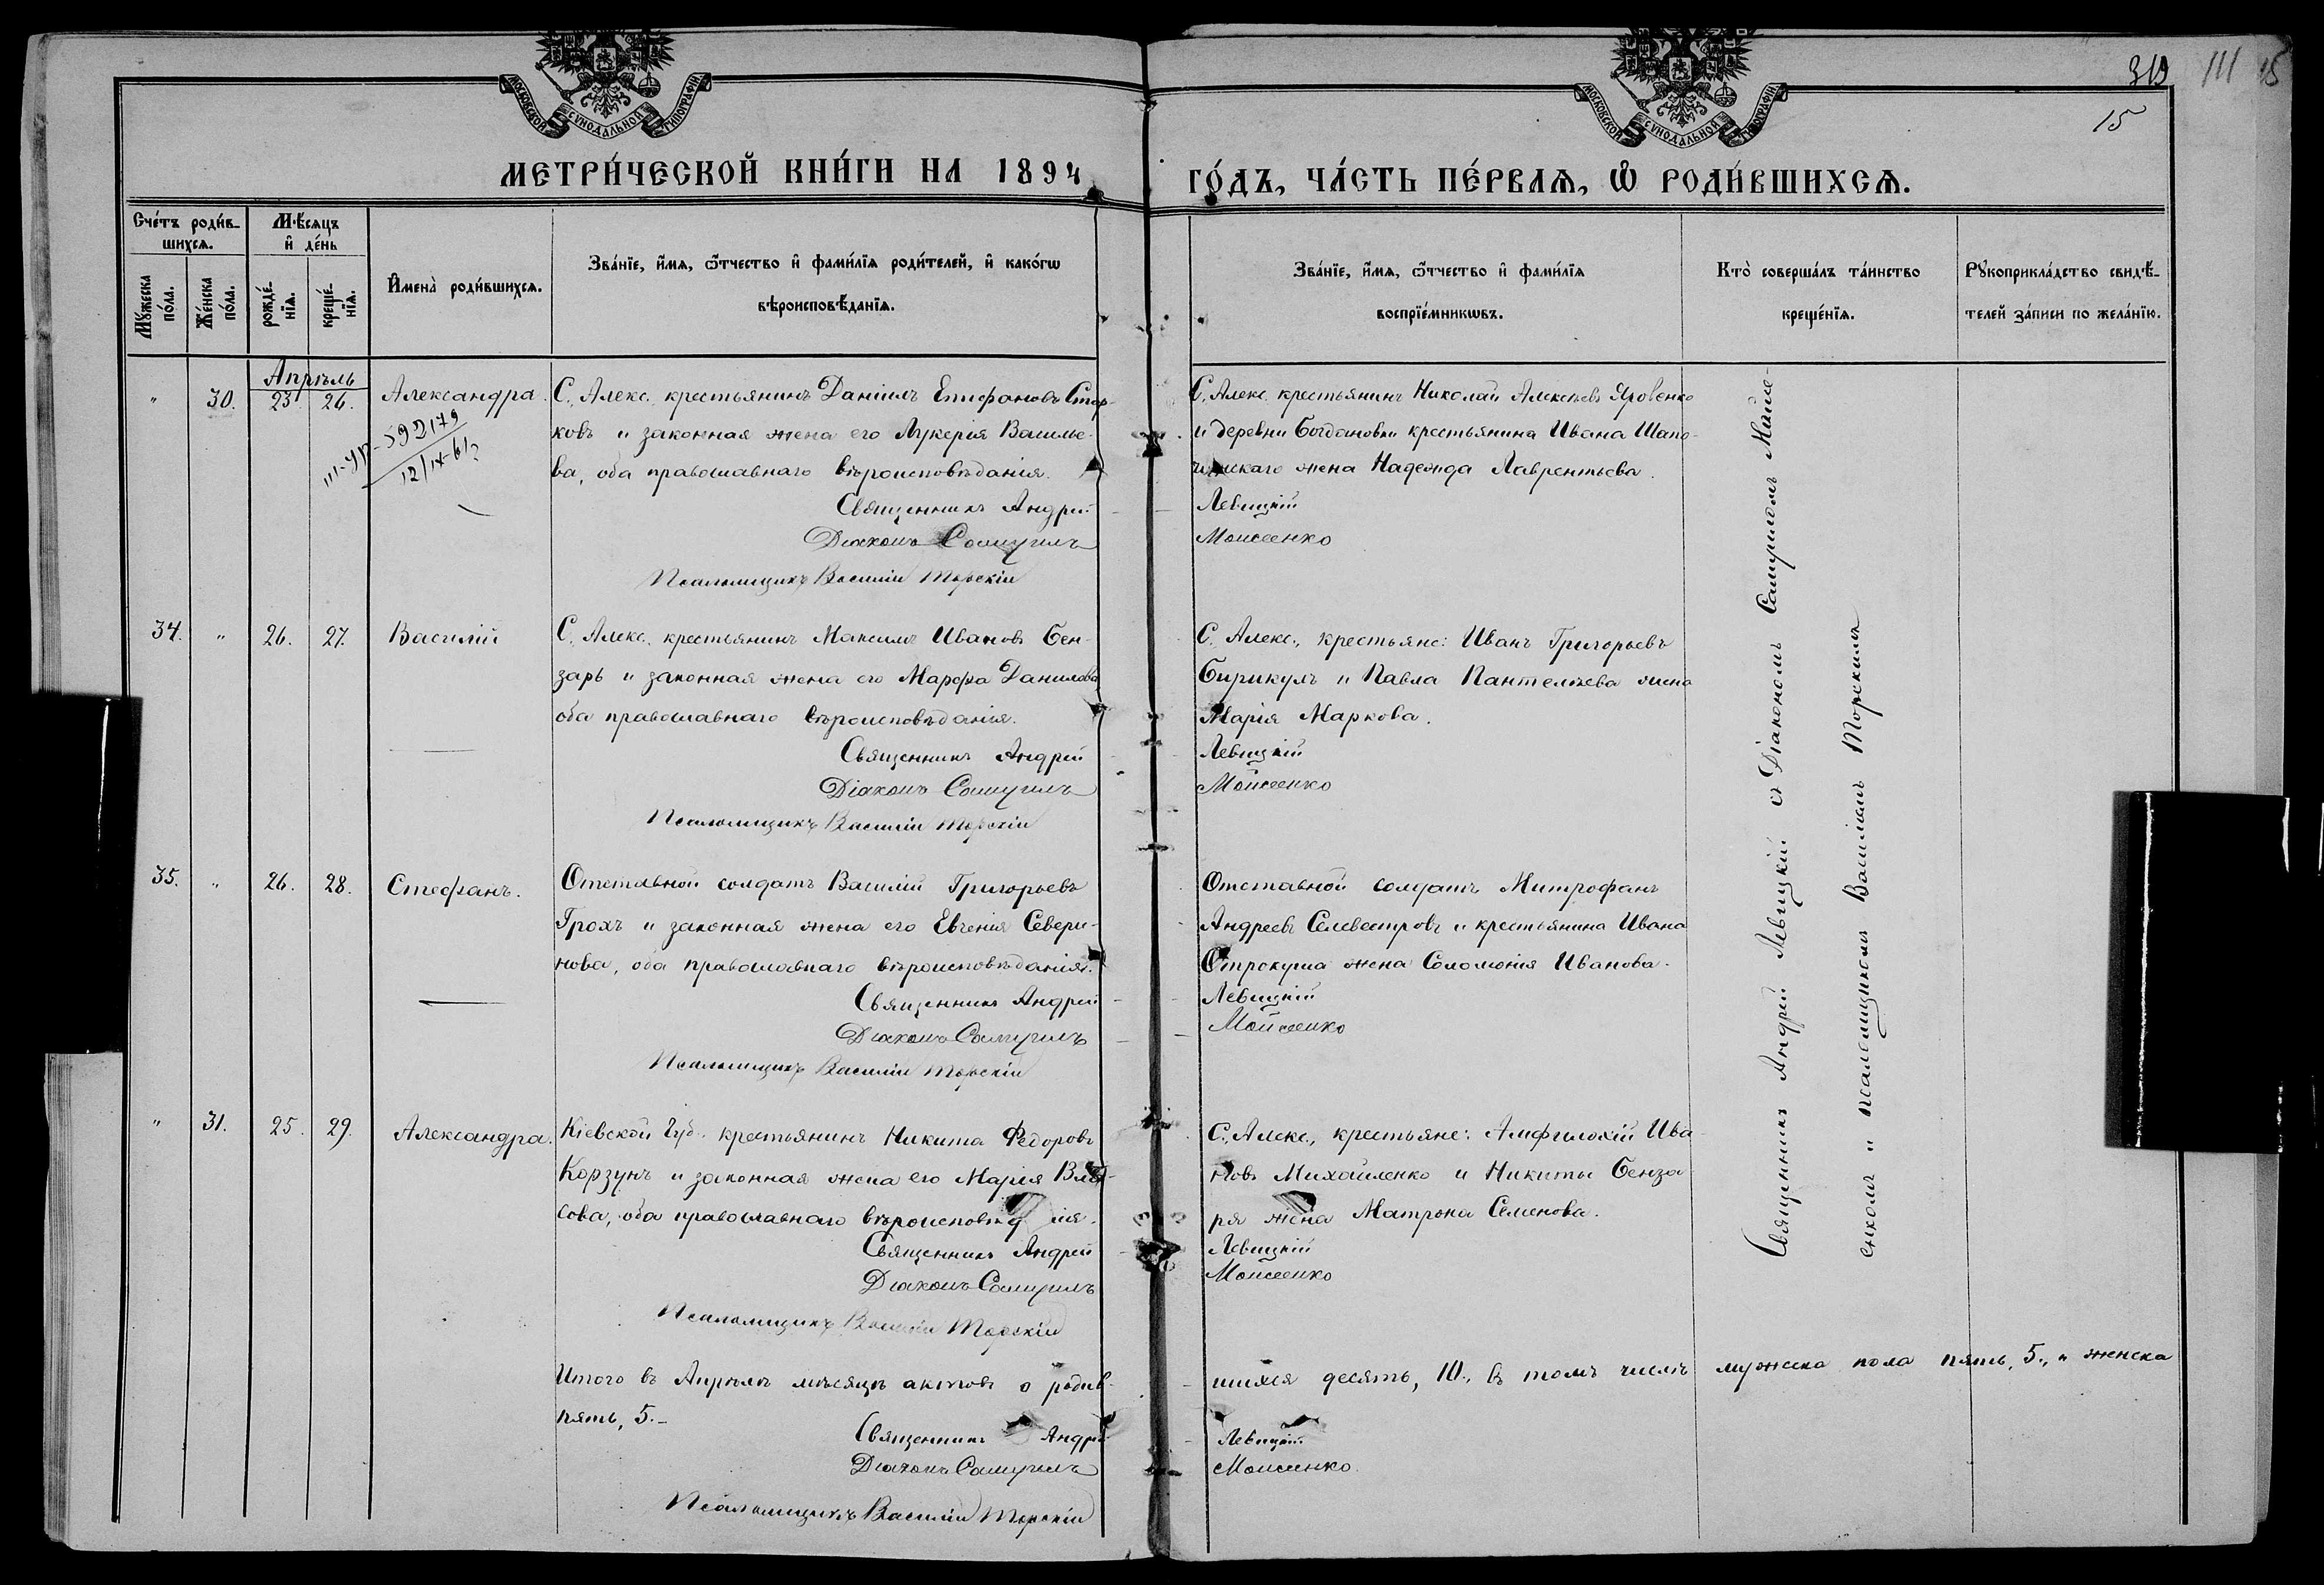 МОСКОВСКОЙ СУНОДАЛЬНОЙ ТИПОГРАФІИ
МОСКОВСКОЙ СУНОДАЛЬНОЙ ТИПОГРАФІИ
319
111
15
15
МЕТРИ́ЧЕСКОЙ КНИ́ГИ НА 1894
ГО́ДЪ, ЧА́СТЬ ПЕ́РВАѦ, Ѡ РОДИ́ВШИХСѦ.
Сче́тъ роди́в-
шихсѧ.
Мѣ́сѧцъ
и де́нь
Мꙋ́жеска
по́ла.
Же́нска
по́ла.
рожде́-
нїѧ.
креще́-
нїѧ.
Имена̀ роди́вшихсѧ.
Зва́нїе, и́мѧ, ѻ́тчество и фами́лїѧ роди́телей, и како́гѡ
вѣроисповѣ́данїѧ.
Зва́нїе, и́мѧ, ѻ́тчество и фами́лїѧ
воспрїе́мникѡвъ.
Кто̀ соверша́лъ та́инство
креще́нїѧ.
Рꙋкоприкла́дство свидѣ́-
телей за́писи по жела́нїю.
Апрѣль
" 30. 23. 26. Александра.
III-УР-592179
С. Алекс. крестьянинъ Даніилъ Епифановъ Стар-
ковъ и законная жена его Лукерія Василье-
ва, оба православнаго вѣроисповѣданія.
Священникъ Андрей
Діаконъ Самуилъ
Псаломщикъ Василій Торскій
С. Алекс. крестьянинъ Николай Алексѣевъ Яровенко
и деревни Богдановки крестьянина Ивана Шапо-
жена Надежда Лаврентьева.
Левицкій
Моисеенко
34. " 26. 27. Василій
С. Алекс. крестьянинъ Максимъ Ивановъ Бен-
зарь и законная жена его Марфа Данилова
оба православнаго вѣроисповѣданія.
Священникъ Андрей
Діаконъ Самуилъ
Псаломщикъ Василій Торскій
С. Алекс., крестьяне: Иванъ Григорьевъ
Бирикулъ и Павла Пантелѣева жена
Марія Маркова.
Левицкій
Моисеенко
35. " 26. 28. Стефанъ.
Отставной солдатъ Василій Григорьевъ
Грохъ и законная жена его Евгенія Севери-
нова, оба православнаго вѣроисповѣданія.
Священникъ Андрей
Діаконъ Самуилъ
Псаломщикъ Василій Торскій
Отставной солдатъ Митрофанъ
Андреевъ Селевестровъ и крестьянина Ивана
жена Соломонія Иванова.
Левицкій
Моисеенко
" 31. 25. 29. Александра.
Кіевской Губ. крестьянинъ Никита Федоровъ
Корзунъ и законная жена его Марія Вла-
сова, оба православнаго вѣроисповѣд ія.
Священникъ Андрей
Діаконъ Самуилъ
Псаломщикъ Василій Торскій
С. Алекс., крестьяне: Амфилохій Ива-
новъ Михайленко и Никиты Бенза-
ря жена Матрона Семенова.
Левицкій
Моисеенко
Священникъ Андрей Левицкій съ Діакономъ Самуиломъ Моисе-
енкомъ и псаломщикомъ Василіемъ Торскимъ
Итого въ Апрѣлѣ мѣсяцѣ актовъ о родив-
шихся десять, 10., въ томъ числѣ мужеска пола пять, 5., и женска
пять, 5.-
Священникъ Андрей
Діаконъ Самуилъ
Псаломщикъ Василій Торскій
Левицкій
Моисеенко.